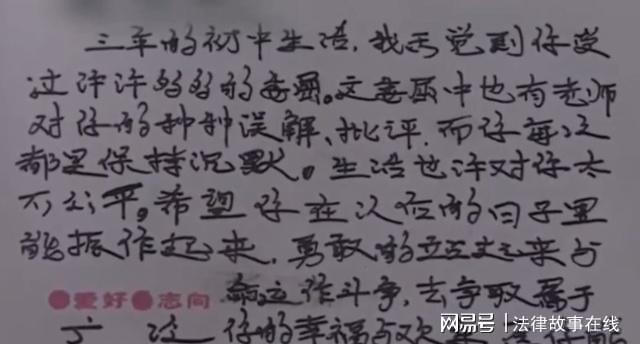 三年的初中生活,我无觉到你受
过许许多多的委屈。这委屈中也有老师
对你的种种误解、批评,而你每次
都是保持沉默。生活也许对你太
不公平。希望你在以后的日子里
能振作起来,勇敢的立起来与
●爱好●志向 命运作斗争,去争取属于
你的幸福与欢
网易号 | 法律故事在线